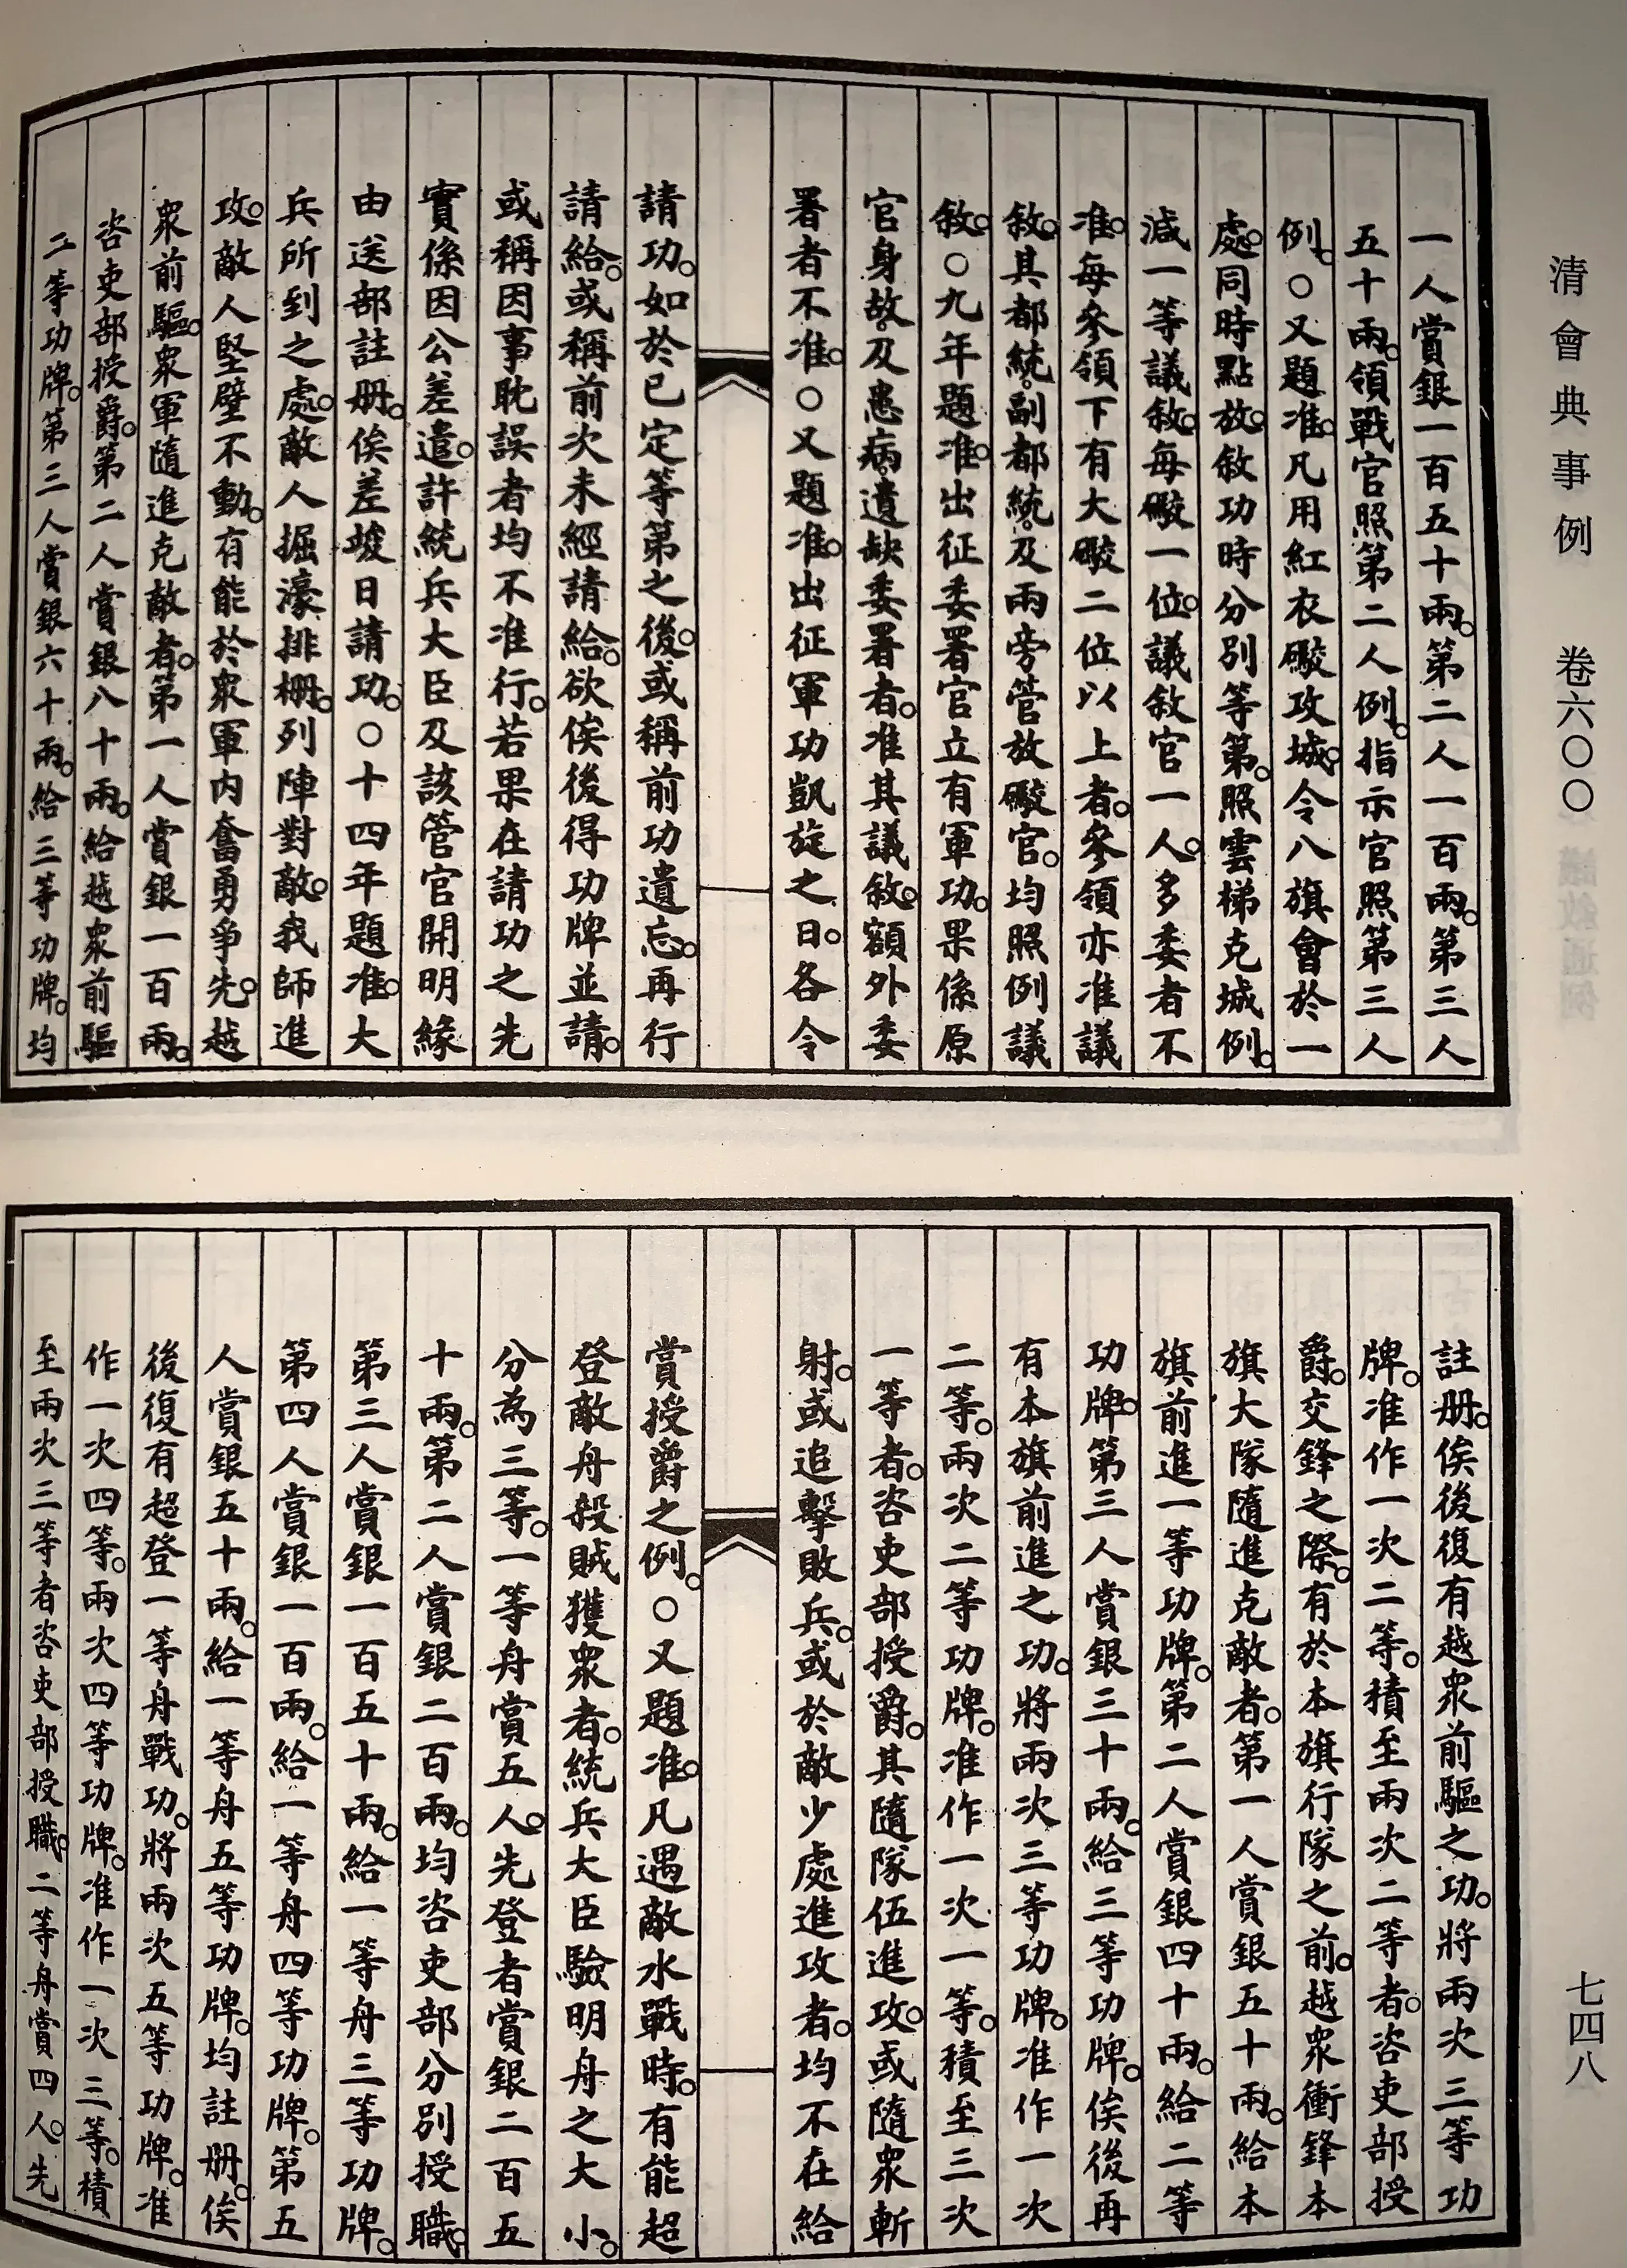 清會典事例　卷六〇〇
一人賞銀一百五十兩。第二人一百兩。第三人
五十兩。領戰官照第二人例。指示官照第三人
例。〇又題准。凡用紅衣礮攻城。令八旗會於一
處。同時點放。敘功時分別等第。照雲梯克城例。
減一等議敘。每礮一位。議敘官一人。多委者不
准。每參領下有大礮二位以上者。參領亦准議
敘。其都統。副都統。及兩旁管放礮官。均照例議
敘。〇九年題准。出征委署官立有軍功。果係原
官身故。及患病遺缺委署者。准其議敘。額外委
署者不准。〇又題准。出征軍功凱旋之日。各令
請功。如於已定等第之後。或稱前功遺忘。再行
請給。或稱前次未經請給。欲俟後得功牌並請。
或稱因事耽誤者均不准行。若果在請功之先
實係因公差遣。許統兵大臣及該管官開明緣
由送部註册。俟差竣日請功。〇十四年題准。大
兵所到之處。敵人掘濠排柵。列陣對敵。我師進
攻。敵人堅壁不動。有能於眾軍內奮勇爭先。越
眾前驅。眾軍隨進克敵者。第一人賞銀一百兩。
咨吏部授爵。第二人賞銀八十兩。給越眾前驅
二等功牌。第三人賞銀六十兩。給三等功牌。均
註册。俟後復有越眾前驅之功。將兩次三等功
牌。准作一次二等。積至兩次二等者。咨吏部授
爵。交鋒之際。有於本旗行隊之前。越眾衝鋒本
旗大隊隨進克敵者。第一人賞銀五十兩。給本
旗前進一等功牌。第二人賞銀四十兩。給二等
功牌。第三人賞銀三十兩。給三等功牌。俟後再
有本旗前進之功。將兩次三等功牌。准作一次
二等。兩次二等功牌。准作一次一等。積至三次
一等者。咨吏部授爵。其隨隊伍進攻。或隨眾斬
射。或追擊敗兵。或於敵少處進攻者。均不在給
賞授爵之例。〇又題准。凡遇敵水戰時。有能超
登敵舟殺賊獲眾者。統兵大臣驗明舟之大小。
分為三等。一等舟賞五人。先登者賞銀二百五
十兩。第二人賞銀二百兩。均咨吏部分別授職。
第三人賞銀一百五十兩。給一等舟三等功牌。
第四人賞銀一百兩。給一等舟四等功牌。第五
人賞銀五十兩。給一等舟五等功牌。均註册。俟
後復有超登一等舟戰功。將兩次五等功牌。准
作一次四等。兩次四等功牌。准作一次三等。積
至兩次三等者咨吏部授職。二等舟賞四人。先
七四八